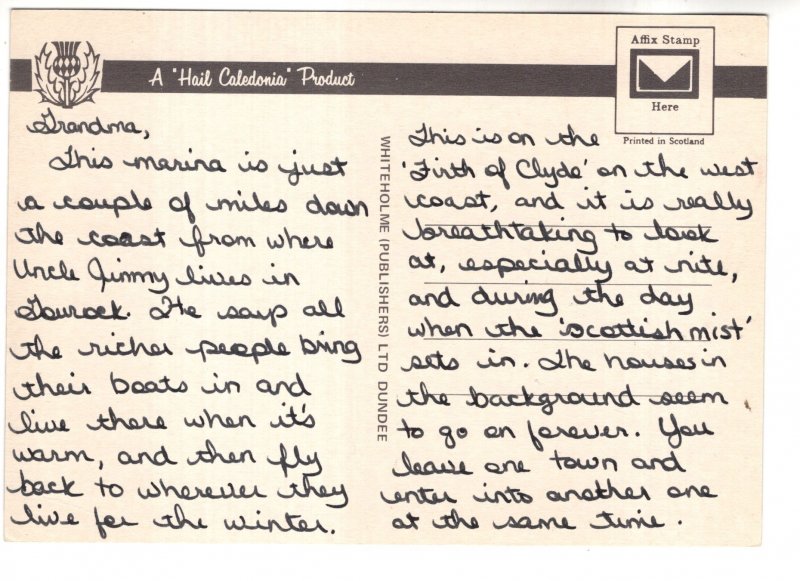 A "Hail Caledonia" Product
Affix Stamp
Here
Printed in Scotland
Grandma,
This marina is just
a couple of miles down
the coast from where
Uncle Jimmy lives in
Gourock. He says all
the richer people bring
their boats in and
live there when it's
warm, and then fly
back to wherever they
live for the winter.
WHITEHOLME (PUBLISHERS) LTD DUNDEE
This is on the
'Firth of Clyde' on the west
coast, and it is really
breathtaking to look
at, especially at nite,
and during the day
when the 'scottish mist'
sets in. The houses in
the background seem
to go on forever. You
leave one town and
enter into another one
at the same time.